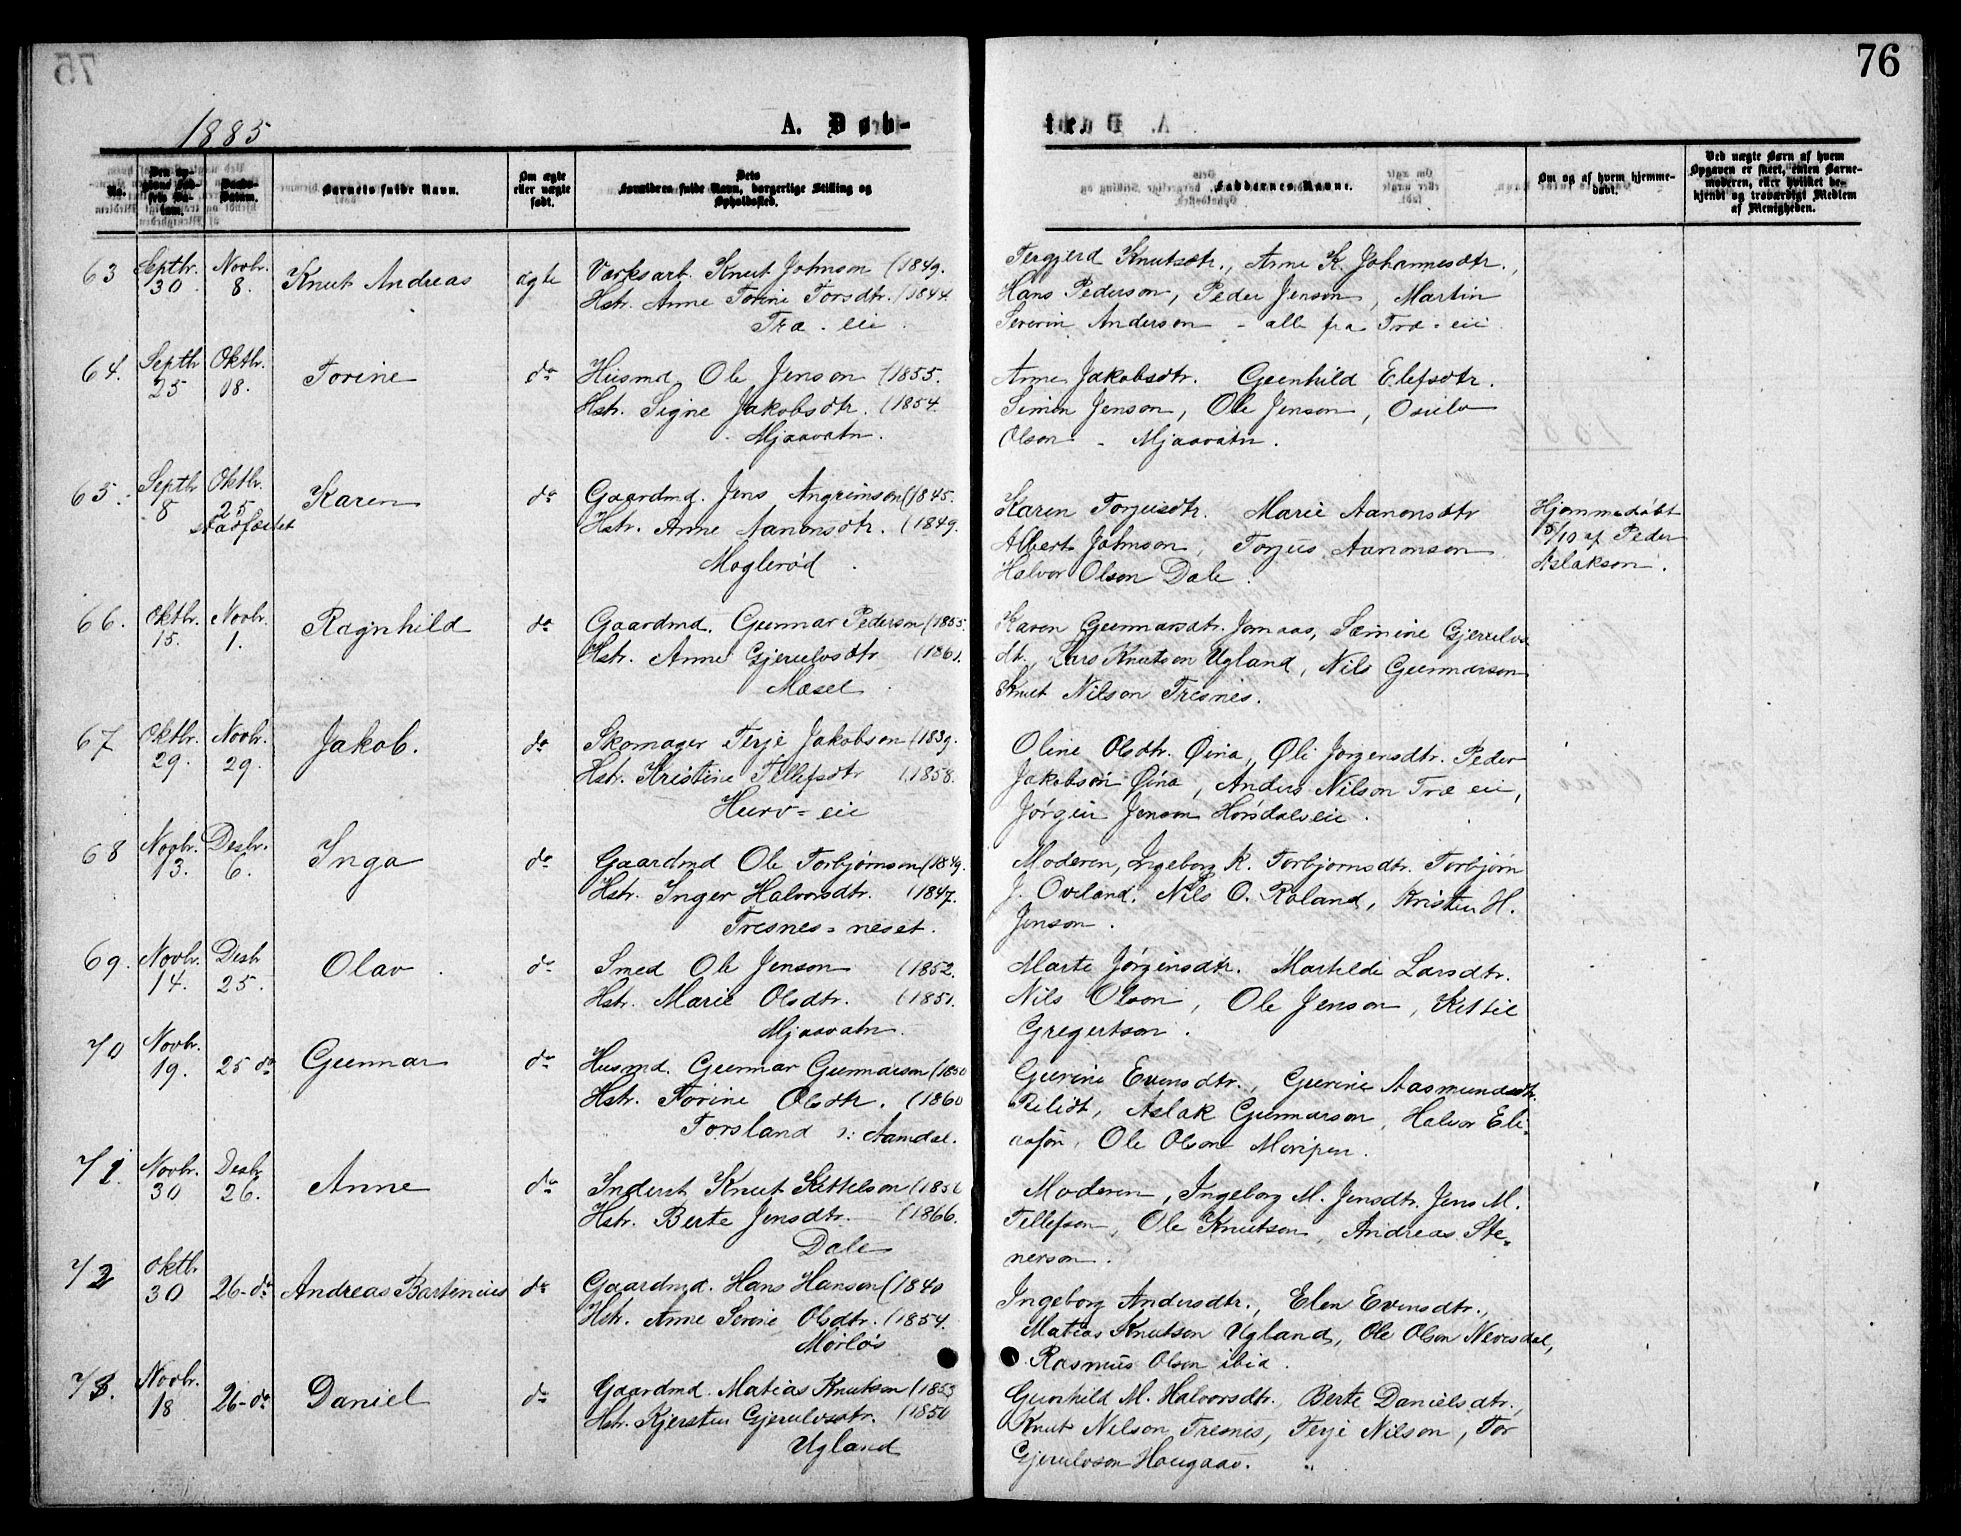 76
1885
A. Døb-
te.
No.
Den opgivne Fødsels Datum.
Daabs-Datum.
Barnets fulde Navn.
Om ægte eller uægte født.
Dets Forældres fulde Navn, borgerlige Stilling og Opholdssted.
Faddernes Navne.
Om og af hvem hjemmedøbt.
Ved uægte Børn af hvem Opgaven er skeet, enten Barnemoderen, eller hvilket bekjendt og troværdigt Medlem af Menigheden.
63 Septbr. 30 Novbr. 8. Knut Andreas ægte Værksarb. Knut Johnson (1849.
Hstr. Anne Torine Torsdtr. (1844.
Træ-eie
Tergjerd Knutsdtr., Anne K. Johannesdtr.,
Hans Pederson, Peder Jenson, Martin
Severin Anderson - alle fra Træ-eie
64. Septbr 25 Oktbr. 18. Torine do Husmd. Ole Jenson (1855.
Hstr. Signe Jakobsdtr. (1854.
Mjaavatn.
Anne Jakobsdtr. Gunhild Elefsdtr.
Simon Jenson, Ole Jenson, Osulv
Olson - Mjaavatn.
65. Septbr 8 Oktbr. 25 stadfæstet Karen do Gaardmd. Jens Angrimson (1845.
Hstr. Anne Aanonsdtr. (1849.
Moglerød
Karen Torjusdtr. Marie Aanonsdtr
Albert Johnson, Torjus Aanonson
Halvor Olson Dale.
Hjemmedøbt
/10 af Peder
Aslakson.
66. Oktbr. 15. Novbr. 1. Ragnhild do Gaardmd. Gunnar Pederson (1855.
Hstr. Anne Gjerulvsdtr (1861.
Mæsel
Karen Gunnarsdtr. Jomaas, Sæmine Gjerulvs-
dtr., Lars Knutson Ugland, Nils Gunnarson
Knut Nilson Tresnes.
67 Oktbr. 29. Novbr. 29. Jakob. do Skomager Terje Jakobson (1839.
Hstr. Kristine Tellefsdtr (1858.
Hurv-eie
Oline Olsdtr. Øina, Øli Jorgensdtr. Peder
Jakobson Øina, Anders Nilson Træ eie,
Jørgen Jenson Horsdalseie.
68 Novbr. 13. Desbr. 6. Inga do Gaardmd Ole Torbjørnson (1849.
Hstr. Inger Halvorsdtr. (1847.
Tresnes-neset.
Moderen, Ingeborg K. Torbjornsdtr. Torbjørn
J. Oveland. Nils O. Roland, Kristen H.
Jenson.
69. Novbr. 14. Desbr 25. Olav do Smed Ole Jenson (1852.
Hstr. Marie Olsdtr. (1851.
Mjaavatn.
Marte Jørgensdtr. Martilde Larsdtr.
Nils Olson, Ole Jenson, Kittil
Gregertson.
70 Novbr. 19. 25 do Gunnar do Husmd. Gunnar Gunnarson (1850
Hstr. Torine Olsdtr. (1860
Torsland i Aamdal.
Gurine Evensdtr., Gurine Aasmundsdtr.
Relidt, Aslak Gunnarson, Halvor Eli-
asson, Ole Olson Moripen.
71. Novbr. 30 Desbr 26. Anne do Inderst Knut Kittelson (1856
Hstr. Berte Jensdtr. (1866.
Dale
Moderen, Ingeborg M. Jensdtr. Jens M.
Tellefson, Ole Knutson, Andreas Ste-
nerson.
72 Oktbr 30 26-do Andreas Bartinius do Gaardmd. Hans Hanson (1840
Hstr. Anne Serine Olsdtr. (1854.
Mørløs
Ingeborg Andersdtr., Elen Evensdtr.,
Matias Knutson Ugland, Ole Olson Nevesdal,
Rasmus Olson ibid.
73. Novbr. 18 26-do Daniel do Gaardmd. Matias Knutson (1853
Hstr. Kjersten Gjerulvsdtr. (1850
Ugland
Gunhild M. Halvorsdtr. Berte Danielsdtr.,
Knut Nilson Tresnes, Terje Nilson, Tor
Gjerulvson Haugaas.